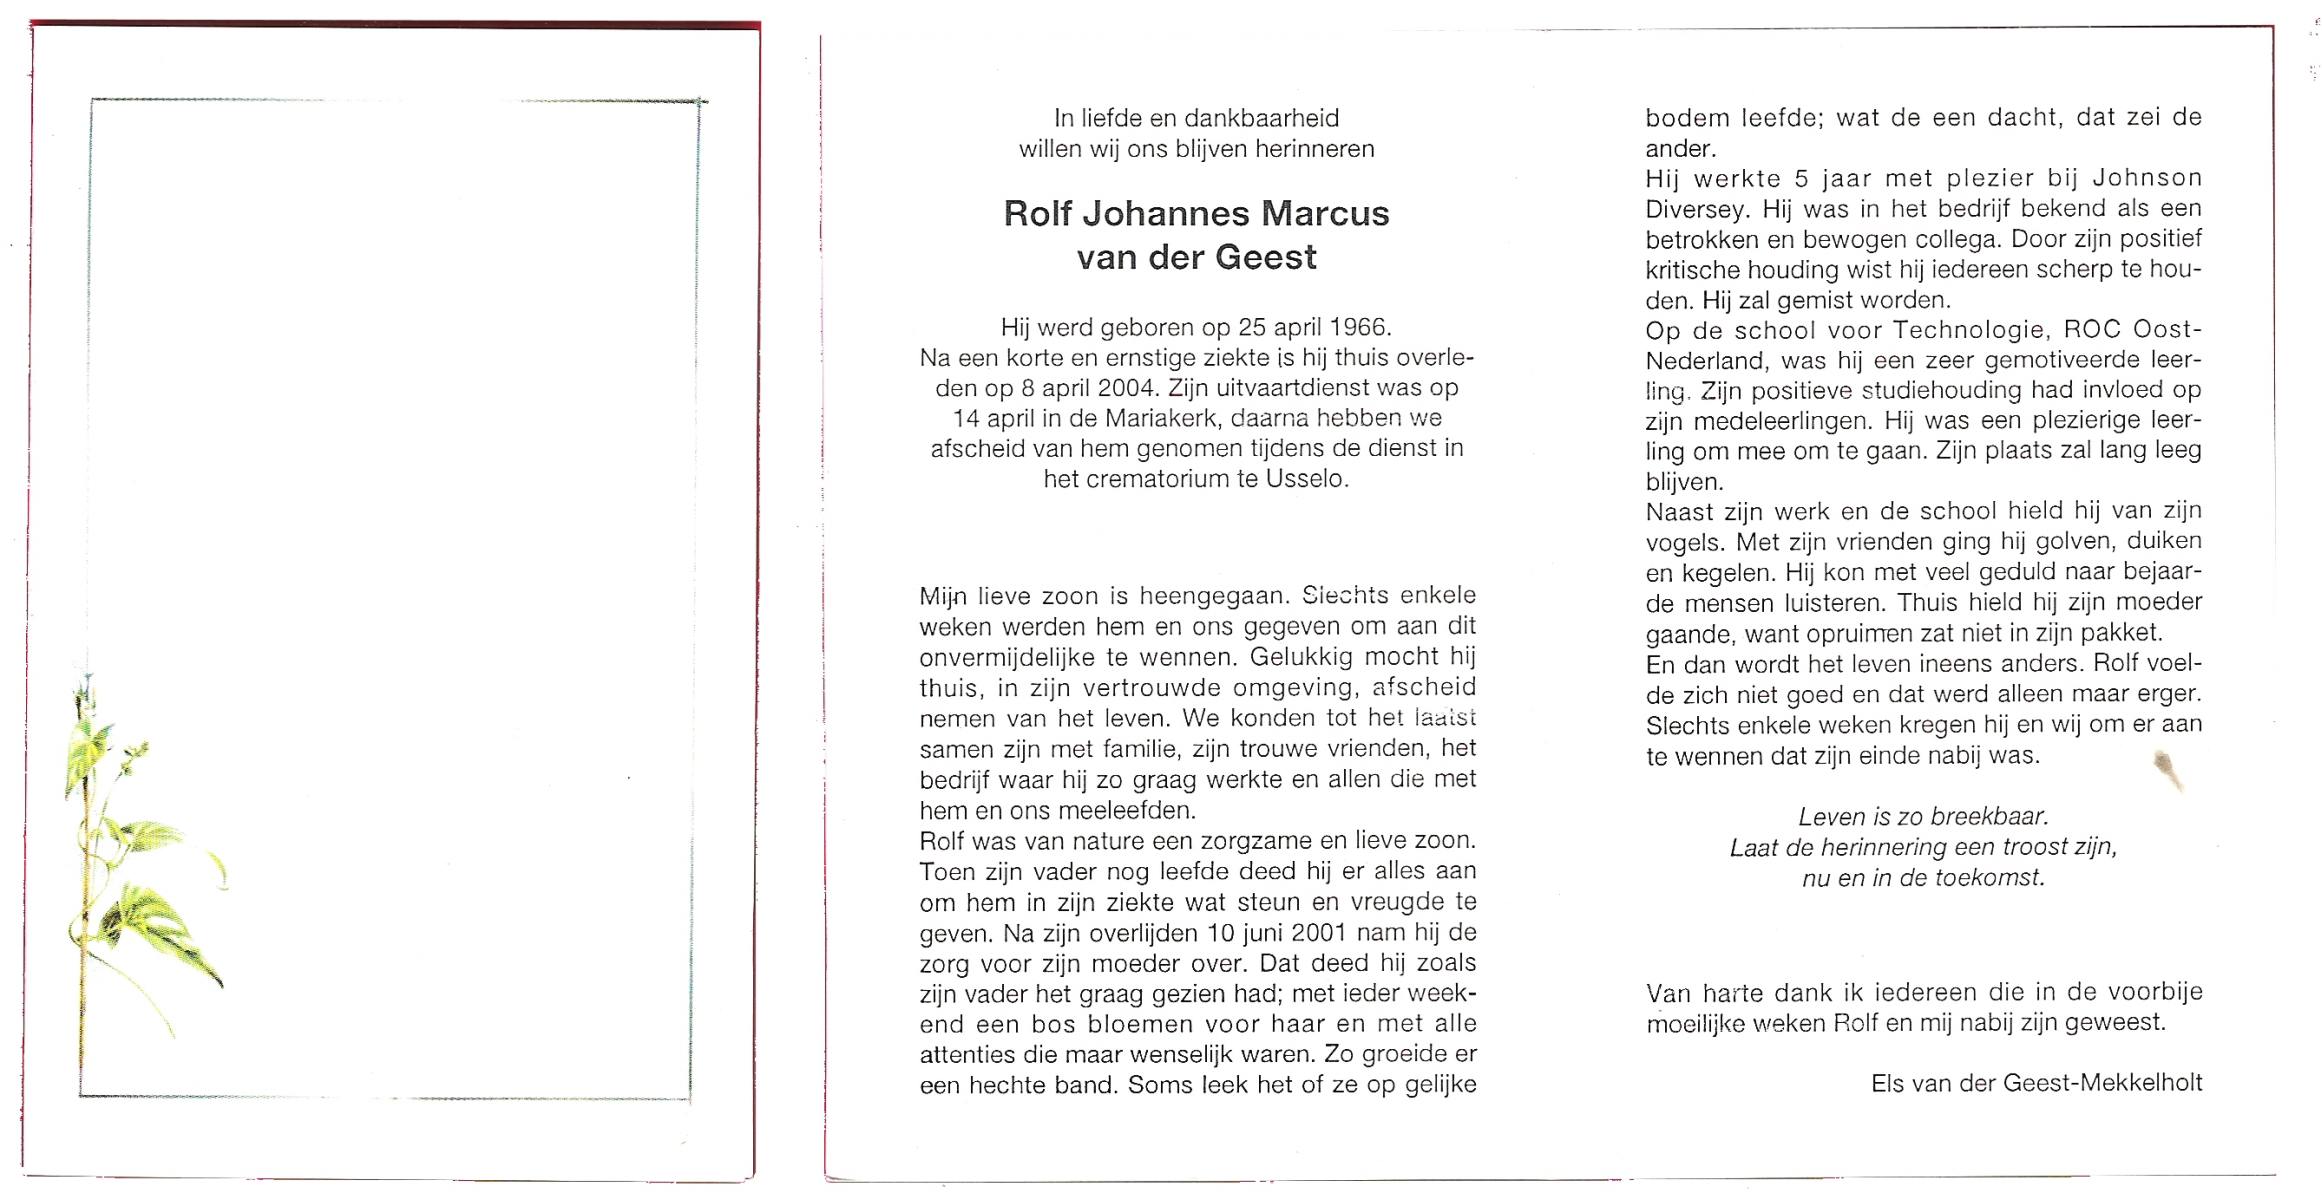 In liefde en dankbaarheid
willen wij ons blijven herinneren
Rolf Johannes Marcus
van der Geest
Hij werd geboren op 25 april 1966.
Na een korte en ernstige ziekte is hij thuis overle-
den op 8 april 2004. Zijn uitvaartdienst was op
14 april in de Mariakerk, daarna hebben we
afscheid van hem genomen tijdens de dienst in
het crematorium te Usselo.
Mijn lieve zoon is heengegaan. Slechts enkele
weken werden hem en ons gegeven om aan dit
onvermijdelijke te wennen. Gelukkig mocht hij
thuis, in zijn vertrouwde omgeving, afscheid
nemen van het leven. We konden tot het laatst
samen zijn met familie, zijn trouwe vrienden, het
bedrijf waar hij zo graag werkte en allen die met
hem en ons meeleefden.
Rolf was van nature een zorgzame en lieve zoon.
Toen zijn vader nog leefde deed hij er alles aan
om hem in zijn ziekte wat steun en vreugde te
geven. Na zijn overlijden 10 juni 2001 nam hij de
zorg voor zijn moeder over. Dat deed hij zoals
zijn vader het graag gezien had; met ieder week-
end een bos bloemen voor haar en met alle
attenties die maar wenselijk waren. Zo groeide er
een hechte band. Soms leek het of ze op gelijke
bodem leefde; wat de een dacht, dat zei de
ander.
Hij werkte 5 jaar met plezier bij Johnson
Diversey. Hij was in het bedrijf bekend als een
betrokken en bewogen collega. Door zijn positief
kritische houding wist hij iedereen scherp te hou-
den. Hij zal gemist worden.
Op de school voor Technologie, ROC Oost-
Nederland, was hij een zeer gemotiveerde leer-
ling. Zijn positieve studiehouding had invloed op
zijn medeleerlingen. Hij was een plezierige leer-
ling om mee om te gaan. Zijn plaats zal lang leeg
blijven.
Naast zijn werk en de school hield hij van zijn
vogels. Met zijn vrienden ging hij golven, duiken
en kegelen. Hij kon met veel geduld naar bejaar-
de mensen luisteren. Thuis hield hij zijn moeder
gaande, want opruimen zat niet in zijn pakket.
En dan wordt het leven ineens anders. Rolf voel-
de zich niet goed en dat werd alleen maar erger.
Slechts enkele weken kregen hij en wij om er aan
te wennen dat zijn einde nabij was.
Leven is zo breekbaar.
Laat de herinnering een troost zijn,
nu en in de toekomst.
Van harte dank ik iedereen die in de voorbije
moeilijke weken Rolf en mij nabij zijn geweest.
Els van der Geest-Mekkelholt